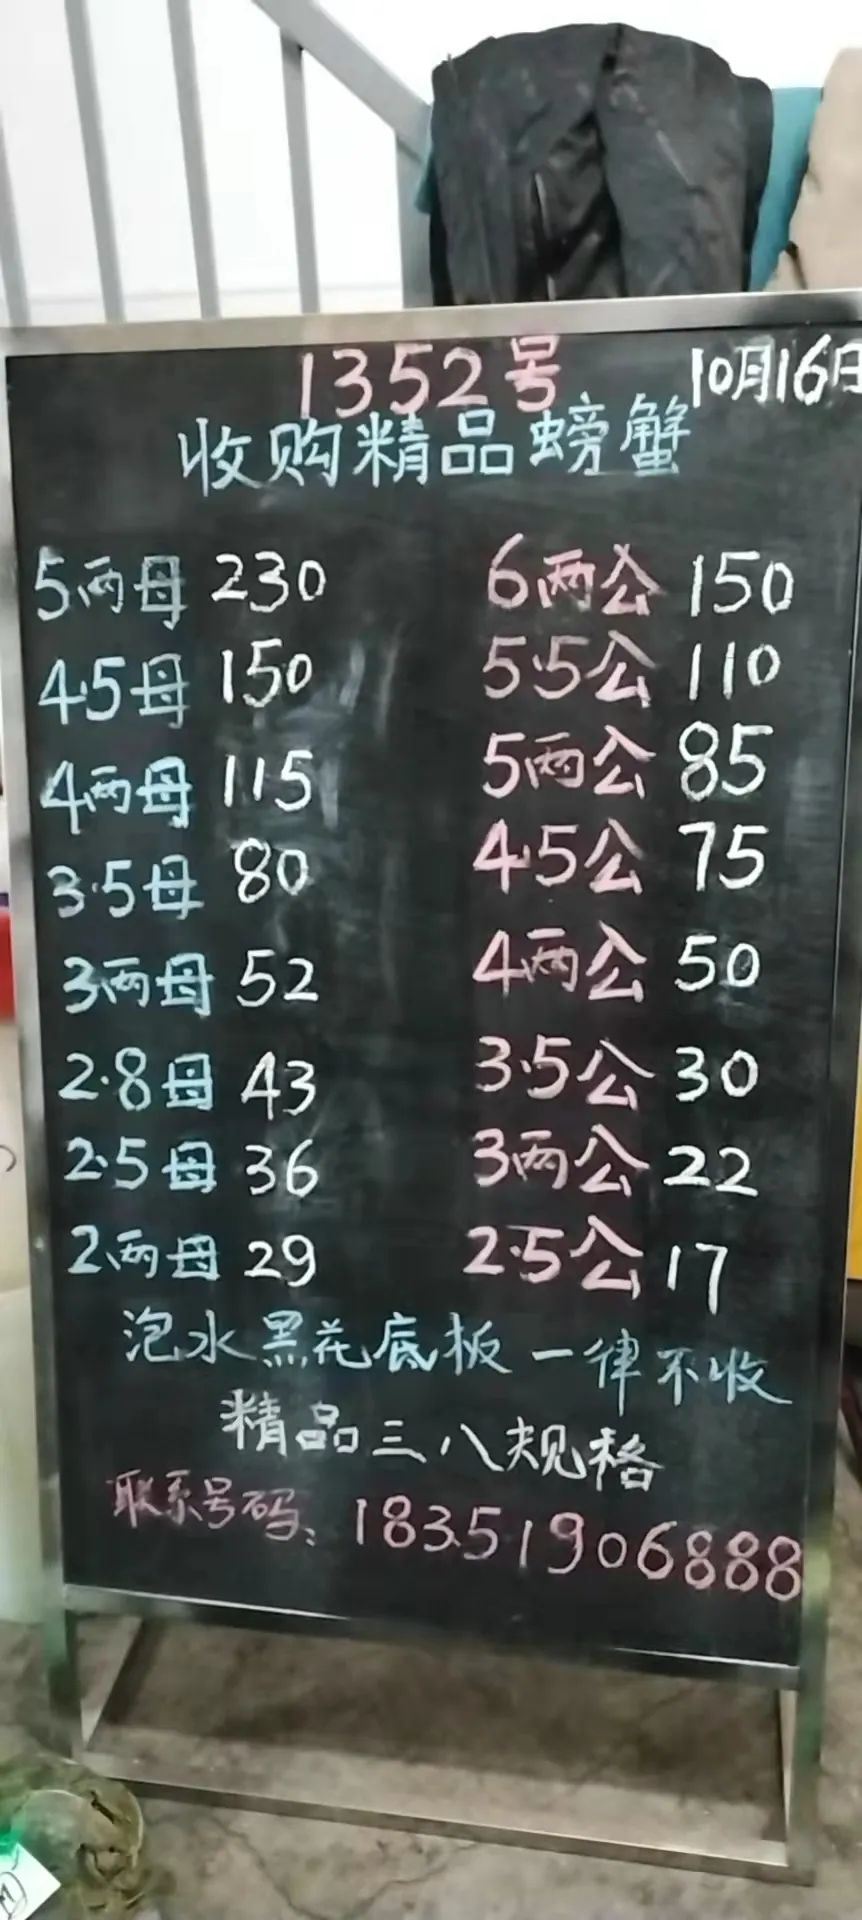 1352号 10月16日
收购精品螃蟹
5两母 230 6两公 150
4.5母 150 5.5公 110
4两母 115 5两公 85
3.5母 80 4.5公 75
3两母 52 4两公 50
2.8母 43 3.5公 30
2.5母 36 3两公 22
2两母 29 2.5公 17
泡水黑花底板一律不收
精品三八规格
联系号码：18351906888